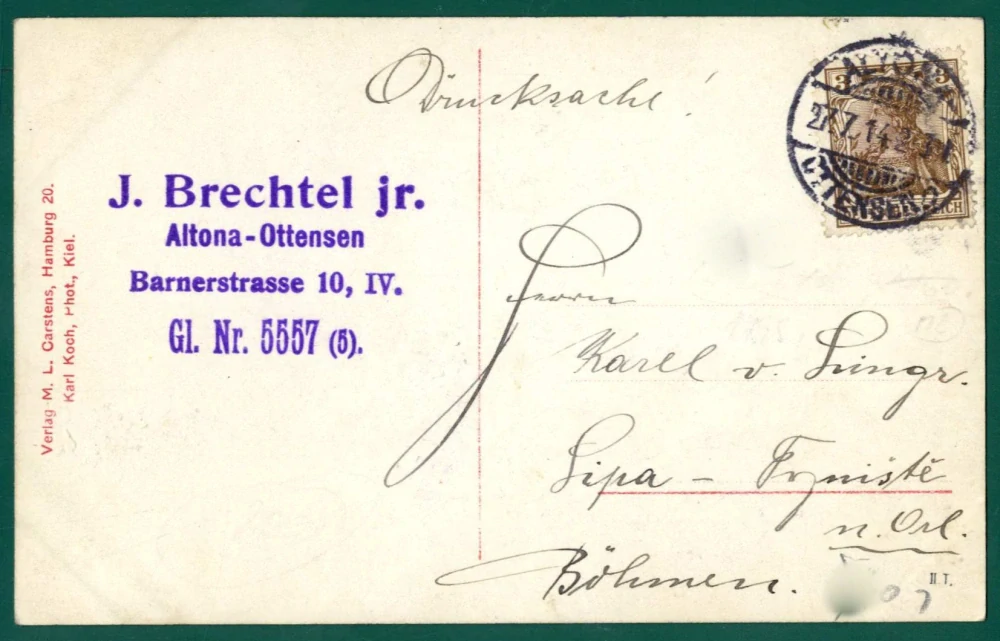 Drucksache!
J. Brechtel jr.
Altona-Ottensen
Barnerstrasse 10, IV.
Gl. Nr. 5557 (5).
Verlag M. L. Carstens, Hamburg 20.
Karl Koch, Phot., Kiel.
3
27.7.14
OTTENSEN
Herrn
Karel v.
Lipa –
n. Orl.
Böhmen.
N.T.